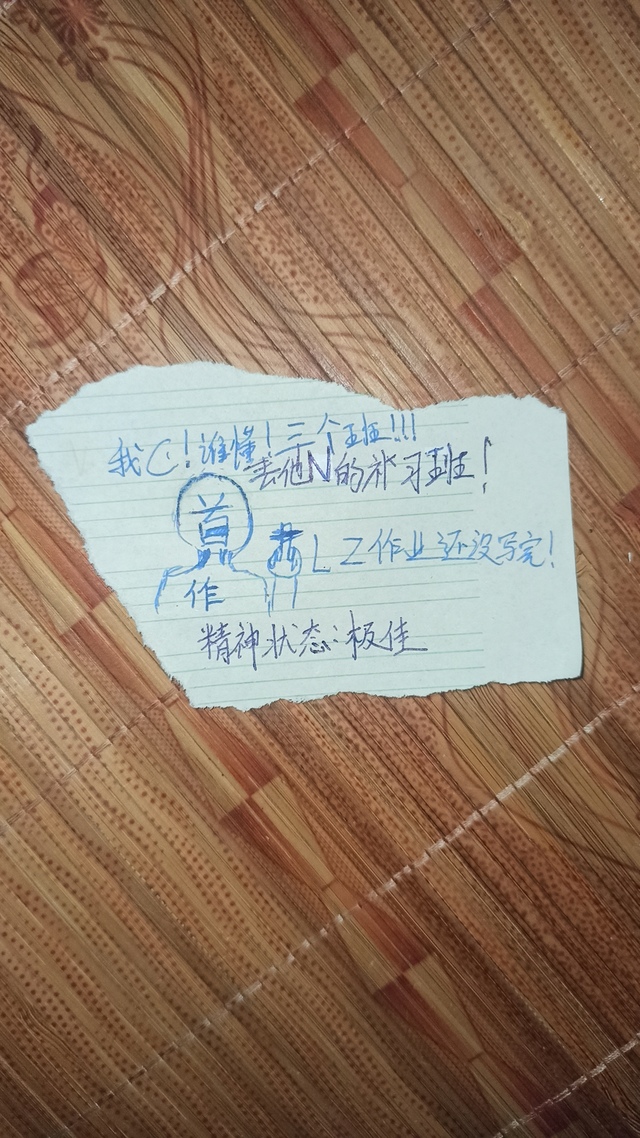 我C!谁懂!三个班!!!
去他N的补习班!
首
作
LZ作业还没写完!
精神状态:极佳